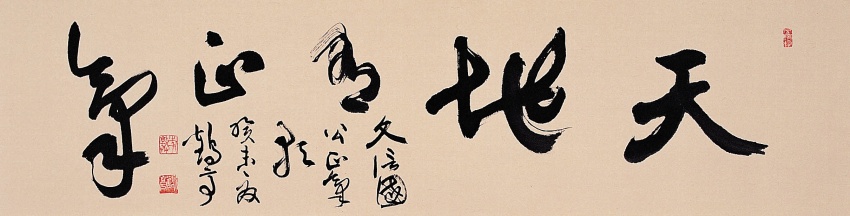 天地有正氣
文信國
公正氣
歌
癸未
鶴亭